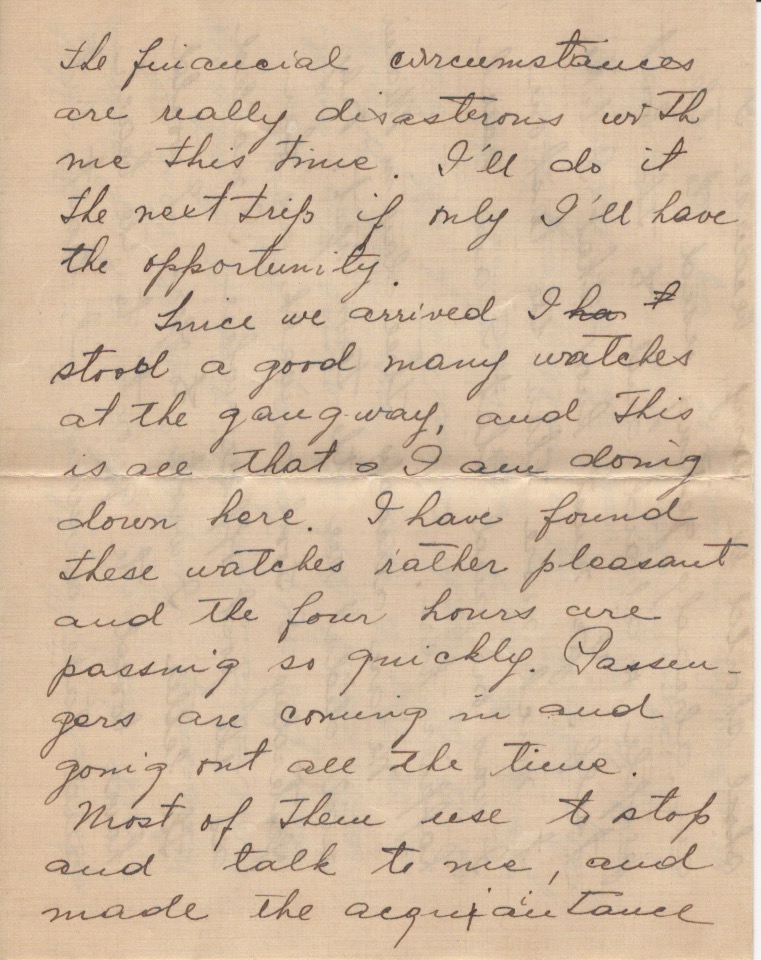 the financial circumstances
are really disasterous with
me this time. I'll do it
the next trip if only I'll have
the opportunity.
Since we arrived I ha
stood a good many watches
at the gangway, and this
is all that I am doing
down here. I have found
these watches rather pleasant
and the four hours are
passing so quickly. Passen-
gers are coming in and
going out all the time.
Most of them use to stop
and talk to me, and
made the acquaintance